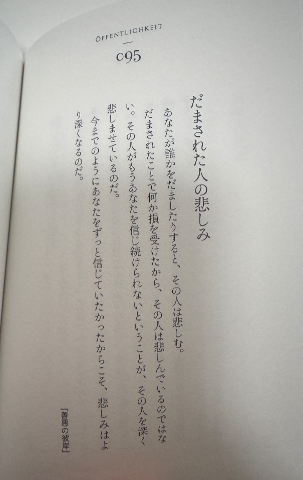 ÖFFENTLICHKEIT
095
だまされた人の悲しみ
あなたが誰かをだましたりすると、その人は悲しむ。
だまされたことで何か損を受けたから、その人は悲しんでいるのではな
い。その人がもうあなたを信じ続けられないということが、その人を深く
悲しませているのだ。
今までのようにあなたをずっと信じていたかったからこそ、悲しみはよ
り深くなるのだ。
『善悪の彼岸』